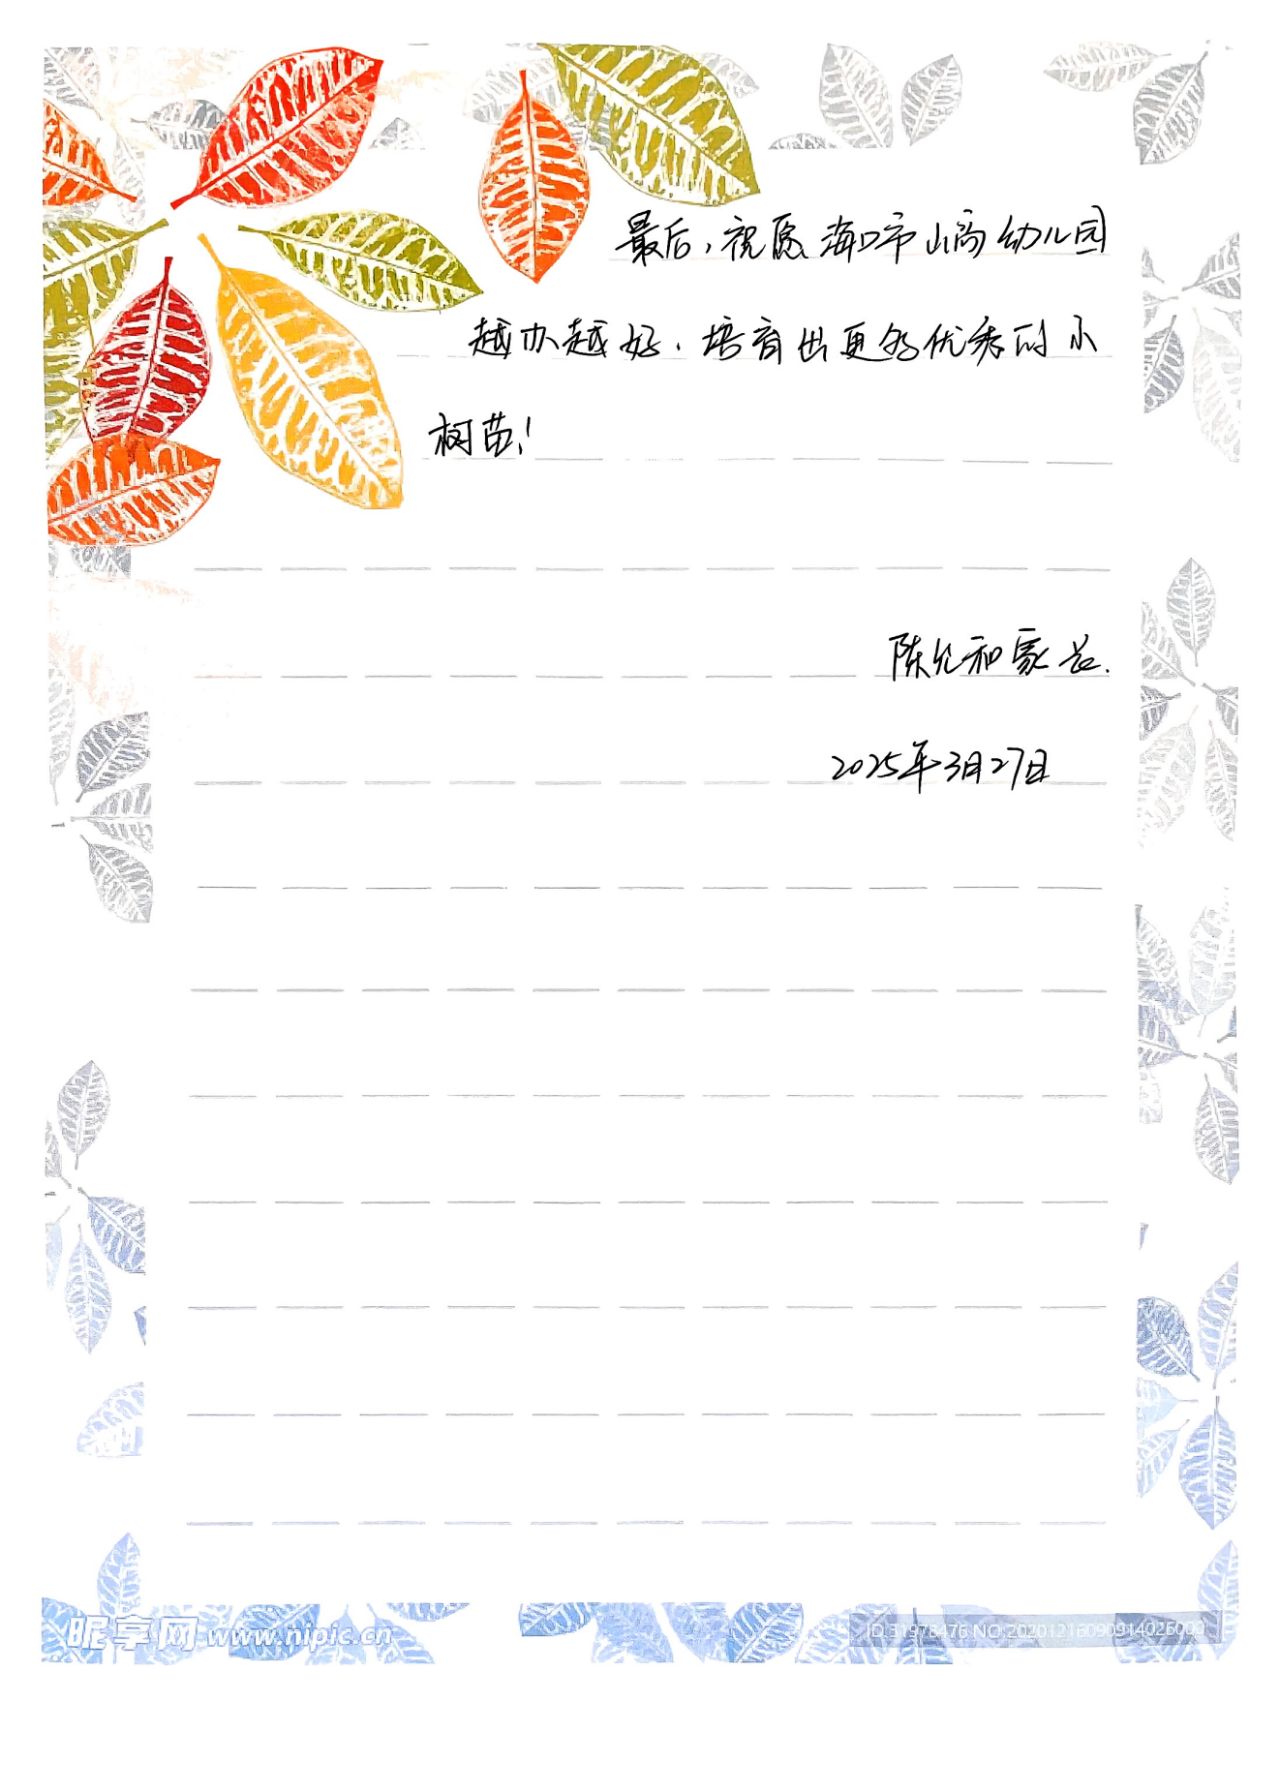 最后，祝愿海口市山高幼儿园
越办越好，培育出更多优秀的小
树苗！
陈允和家长.
2025年3月27日
昵享网 www.nipic.cn
ID:31978476 NO:20201216090914026000